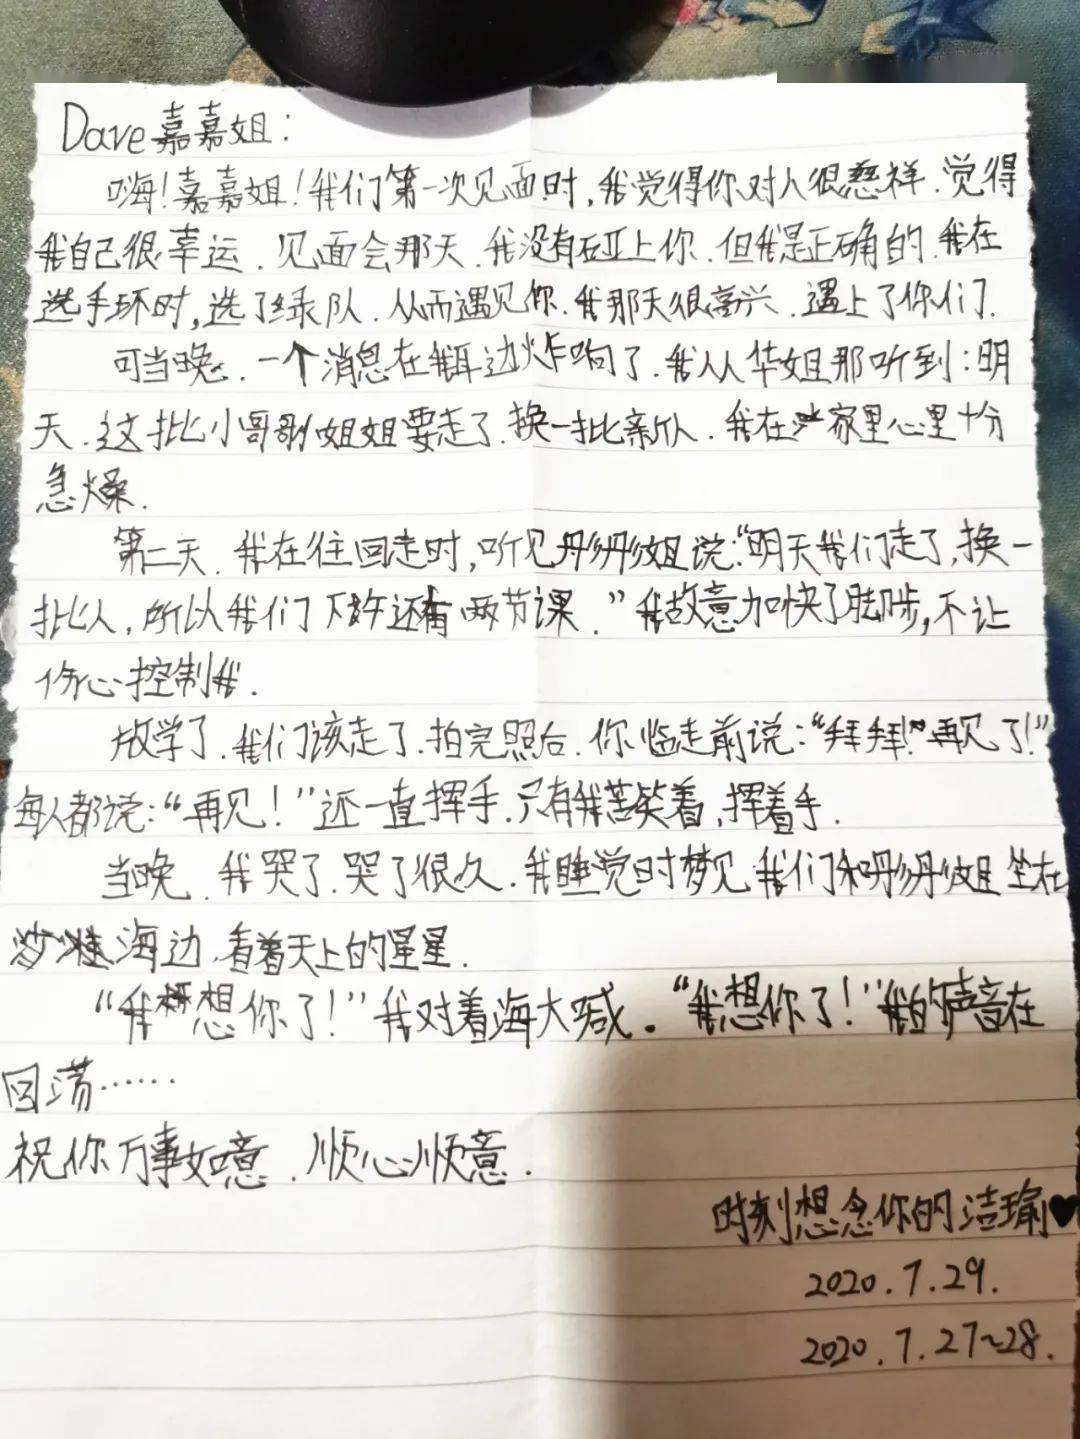 Dave嘉嘉姐：
嗨！嘉嘉姐！我们第一次见面时，我觉得你对人很慈祥.觉得
我自己很幸运.见面会那天.我没有碰上你.但我是正确的.我在
选手环时,选了绿队.从而遇见你.我那天很高兴.遇上了你们.
可当晚.一个消息在我耳边炸响了.我从华姐那听到：明
天.这批小哥哥姐姐要走了.换一批新人.我在家里心里十分
急燥.
第二天.我在往回走时,听见彤彤姐说：“明天我们走了,换一
批人,所以我们下午还有两节课.”我故意加快了脚步,不让
伤心控制我.
放学了.我们该走了.拍完照后.你临走前说：“拜拜！再见了！”
每人都说：“再见！”还一直挥手.只有我苦笑着,挥着手.
当晚.我哭了.哭了很久.我睡觉时梦见我们和彤彤姐坐在
沙滩海边,看着天上的星星.
“我想你了！”我对着海大喊。“我想你了！”我的声音在
回荡……
祝你万事如意.顺心顺意.
时刻想念你的洁瑜♥
2020.7.29.
2020.7.27~28.